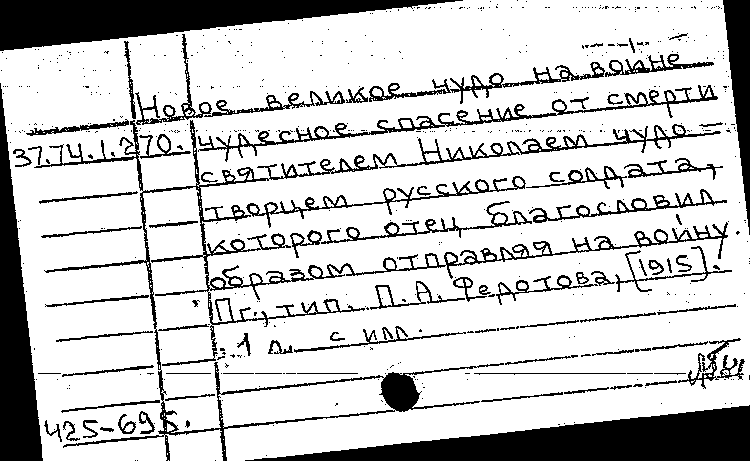 Новое великое чудо на войне
37.74.1.270. чудесное спасение от смерти
святителем Николаем чудо=
творцем русского солдата,
которого отец благословил
образом отправляя на войну.
Пг., тип. П. А. Федотова, [1915].
1 л. с илл.
425-695.